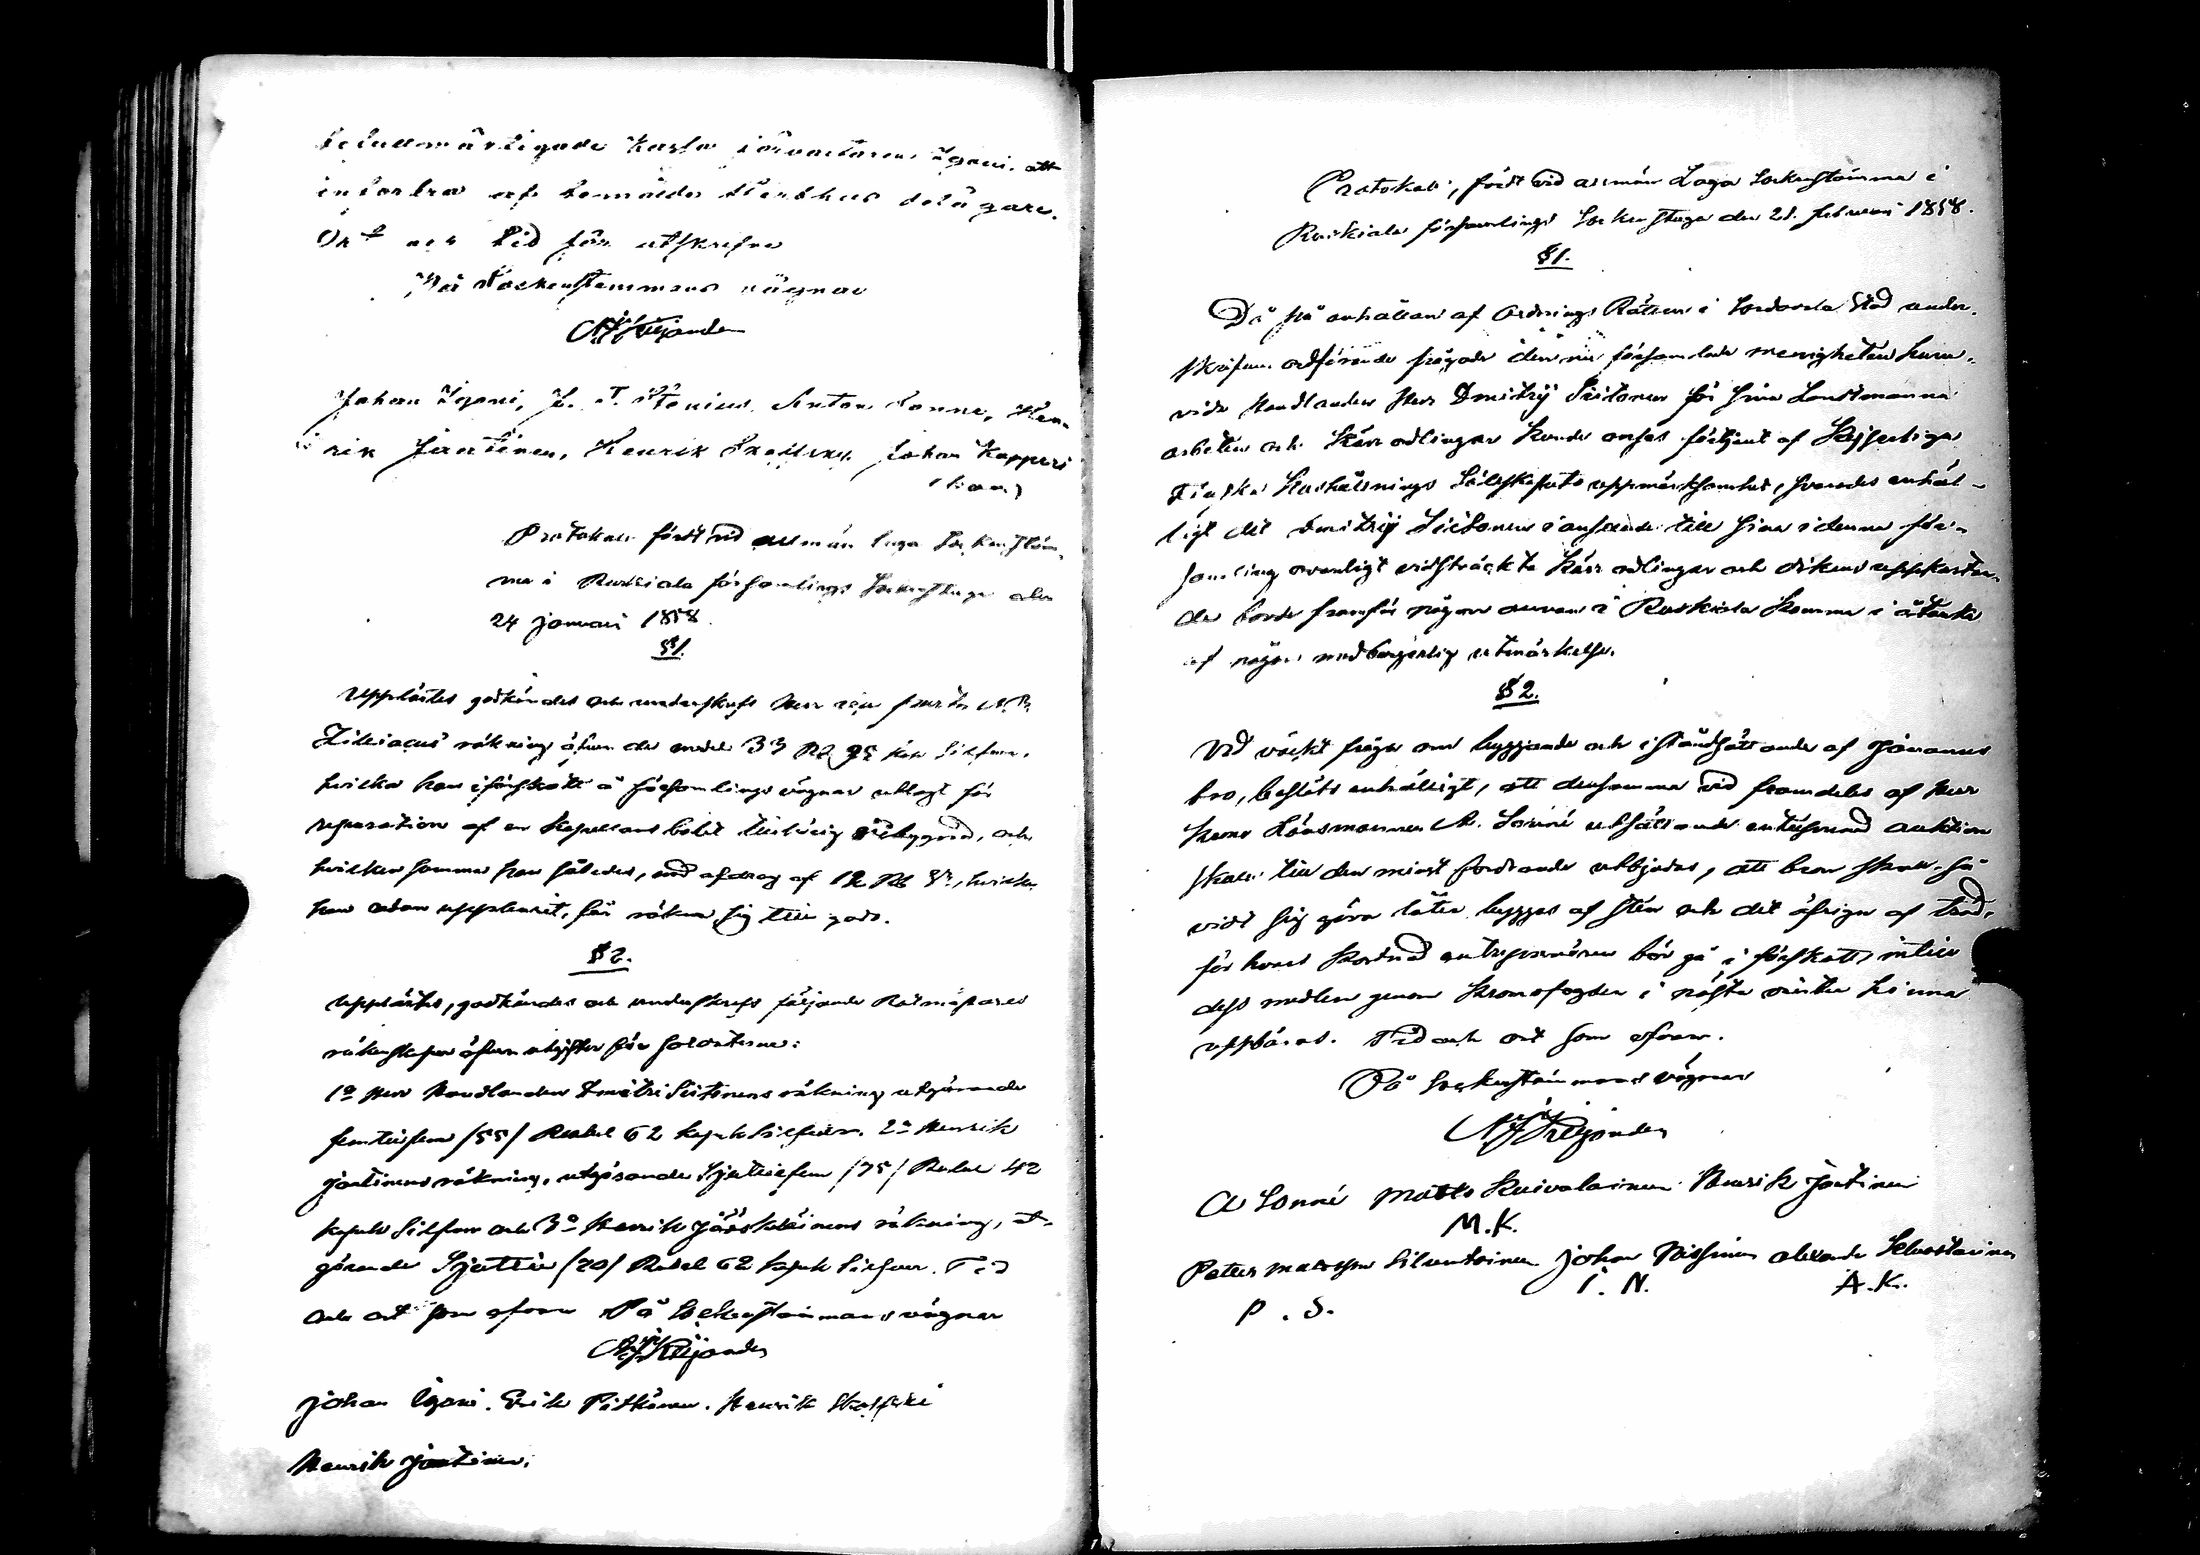 befullmägtigade Kasso förvaltaren Igoni, att
infordra af bemälde Sterbhus delägare.
Ort och tid för utskrefne
På Sockenstämmans vägnar
Johan Igoni, Anton Sonne, Hen-
rik Jantinen, Henrik Johan Kapperi
Protokoll fördt vid allmän laga Sockenstäm-
ma i Ruskiala församlings Sockenstuga den
24 januari 1858.
§1.
Upplästes godkändes och underskrefs Herr
räkning öfver de medel 33 R. 95 kop. Silfver,
hvilka han i förskott å församlings vägnar utlagt för
reparation af en Kapellans bolet tillhörig åbyggnad, och
hvilken summa han således, med afdrag af 12 Rub.
han redan uppburit, får räkna sig till godo.
§2.
Upplästes, godkändes och underskrefs följande Rotmästares
räkenskaper öfver utgifter för soldaterne:
1o Herr Handlanden Dmitri Siitonens räkning utgörande
femtiofem /55/ Rubel 62 kopek Silfver. 2o Henrik
Jantinens räkning, utgörande Sjuttiofem /75/ Rubel 42
kopek Silfver och 3o Henrik Jääskeläinens räkning, ut-
görande Sjuttio /70/ Rubel 62 kopek Silfver. Tid
och ort som ofvan På Sockenstämmans vägnar
Johan Igoni. Erik Pitkänen. Henrik
Henrik Jantinen.
Protokoll, fördt vid allmän Laga Sockenstämma i
Ruskiala församlings Sockenstuga den 21. februari 1858.
§1.
Då på anhållan af Ordnings Rätten i Sordavala Stad under-
skrifven ordförande frågade den nu församlade menigheten huru-
vida Handlanden Herr Dmitrij Siitonen för sina Landtmanna
arbeten och Kärr odlingar kunde anses förtjent af Kejserliga
Finska Hushållnings Sällskapets uppmärksamhet, svarades enhäl-
ligt det Dmitrij Siitonen i anseende till sina i denna för-
samling ovanligt vidsträckta Kärr odlingar och dikens uppkastan-
de borde framför någon annan i Ruskiala komma i åtanke
af någon medborgerlig utmärkelse.
§2.
Vid väckt fråga om byggande och iståndsättande af
bro, beslöts enhälligt, att densamma vid framdeles af Herr
Krono Länsmannen A. Sonné utsättande entreprenad auktion
skall till den minst fordrande utbjudas, att bron skall så
vidt sig göra låter byggas af sten och det öfriga af träd,
för hvars kostnad entreprenören bör gå i förskott, intill
dess medlen genom Kronofogden i nästa vinter hinna
uppbäras. Tid och ort som ofvan.
På Sockenstämmans vägnar
A Sonné Matts Kuivalainen Henrik Jantinen
M.K.
Petter Mattsson Silventoinen Johan Nissinen Alexander
I. N. A.K.
P. S.